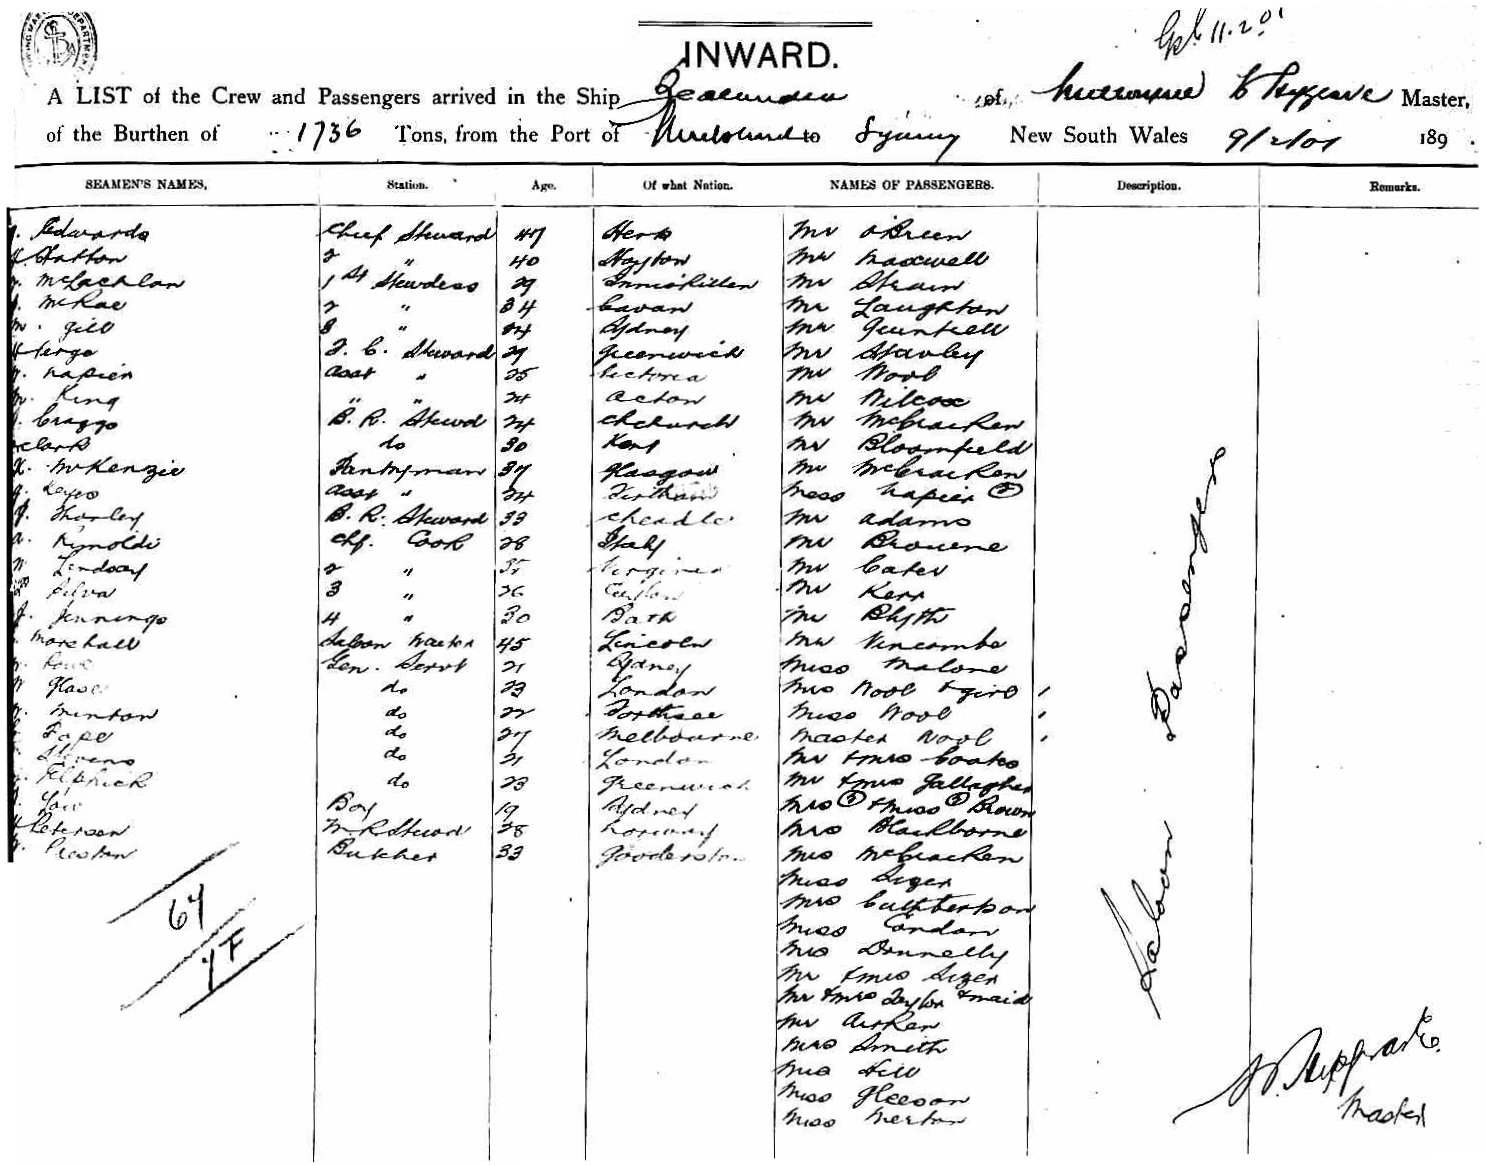 INWARD.
11.2.01
A LIST of the Crew and Passengers arrived in the Ship Zealandia of Master,
of the Burthen of 1736 Tons, from the Port of Auckland to Sydney New South Wales 9/2/01 189
SEAMEN'S NAMES, Station. Age. Of what Nation. NAMES OF PASSENGERS. Description. Remarks.
Edwards Chief Steward 47 Mr O'Brien
Hatton 2 " 40 Mr Maxwell
McLachlan 1st Stewdess 29 Inniskillen Mr Strain
McRae 2 " 34 Cavan Mr Laughton
M. Gill 3 " Sydney Mr
Steward 29 Greenwich Mr Stavley
Napier Asst " 25 Victoria Mr Wool
M. King " " 24 Acton Mr Wilcox
Craggs B. R. Stewd 24 ChChurch Mr McCracken
Clark do 30 Kent Mr Bloomfield
McKenzie Pantryman 37 Glasgow Mr McCracken
Keyes Asst " 24 Miss Napier 2
Thorley B. R. Steward 33 Cheadle Mr Adams
A. Rinoldi Chf. Cook 28 Italy Mr Browne
Lindsay 2 " Virginia Mr Cater
Silva 3 " 26 Ceylon Mr Kerr
J. Jennings 4 " 30 Bath Mr Blyth
Marshall Saloon Waiter 45 Lincoln Mr Vincombe
Gen. Servt 21 Sydney Miss Malone
do 23 London Mrs Wool + girl 1
Minton do 22 Miss Wool 1
Pope do 27 Melbourne Master Wool 1
Stevens do 21 London Mr + Mrs Coates
Elphick do 23 Greenwich Mr + Mrs Gallagher
Low Boy 19 Sydney Mrs + Miss Brown
Peterson Steward 28 Norway Mrs Blackborne
Preston Butcher 33 Gooderston Mrs McCracken
Miss
Mrs Cuthbertson
Miss Condon
Mrs Donnelly
Mr + Mrs
Mr + Mrs Taylor + maid
Mr Aitken
Mrs Smith
Mrs Hill
Miss Gleeson
Miss Merton
Saloon Passengers
67
Master